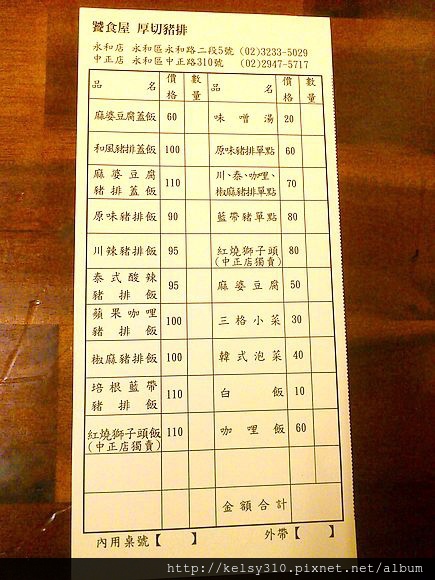 饕食屋 厚切豬排
永和店 永和區永和路二段5號 (02)3233-5029
中正店 永和區中正路310號 (02)2947-5717
品名 價格 數量 品名 價格 數量
麻婆豆腐蓋飯 60 味噌湯 20
和風豬排蓋飯 100 原味豬排單點 60
麻婆豆腐豬排蓋飯 110 川、泰、咖哩、椒麻豬排單點 70
原味豬排飯 90 藍帶豬單點 80
川辣豬排飯 95 紅燒獅子頭(中正店獨賣) 80
泰式酸辣豬排飯 95 麻婆豆腐 50
蘋果咖哩豬排飯 100 三格小菜 30
椒麻豬排飯 100 韓式泡菜 40
培根藍帶豬排飯 110 白飯 10
紅燒獅子頭飯(中正店獨賣) 110 咖哩飯 60
金額合計
內用桌號【 】 外帶【 】
http://kelsy310.pixnet.net/album